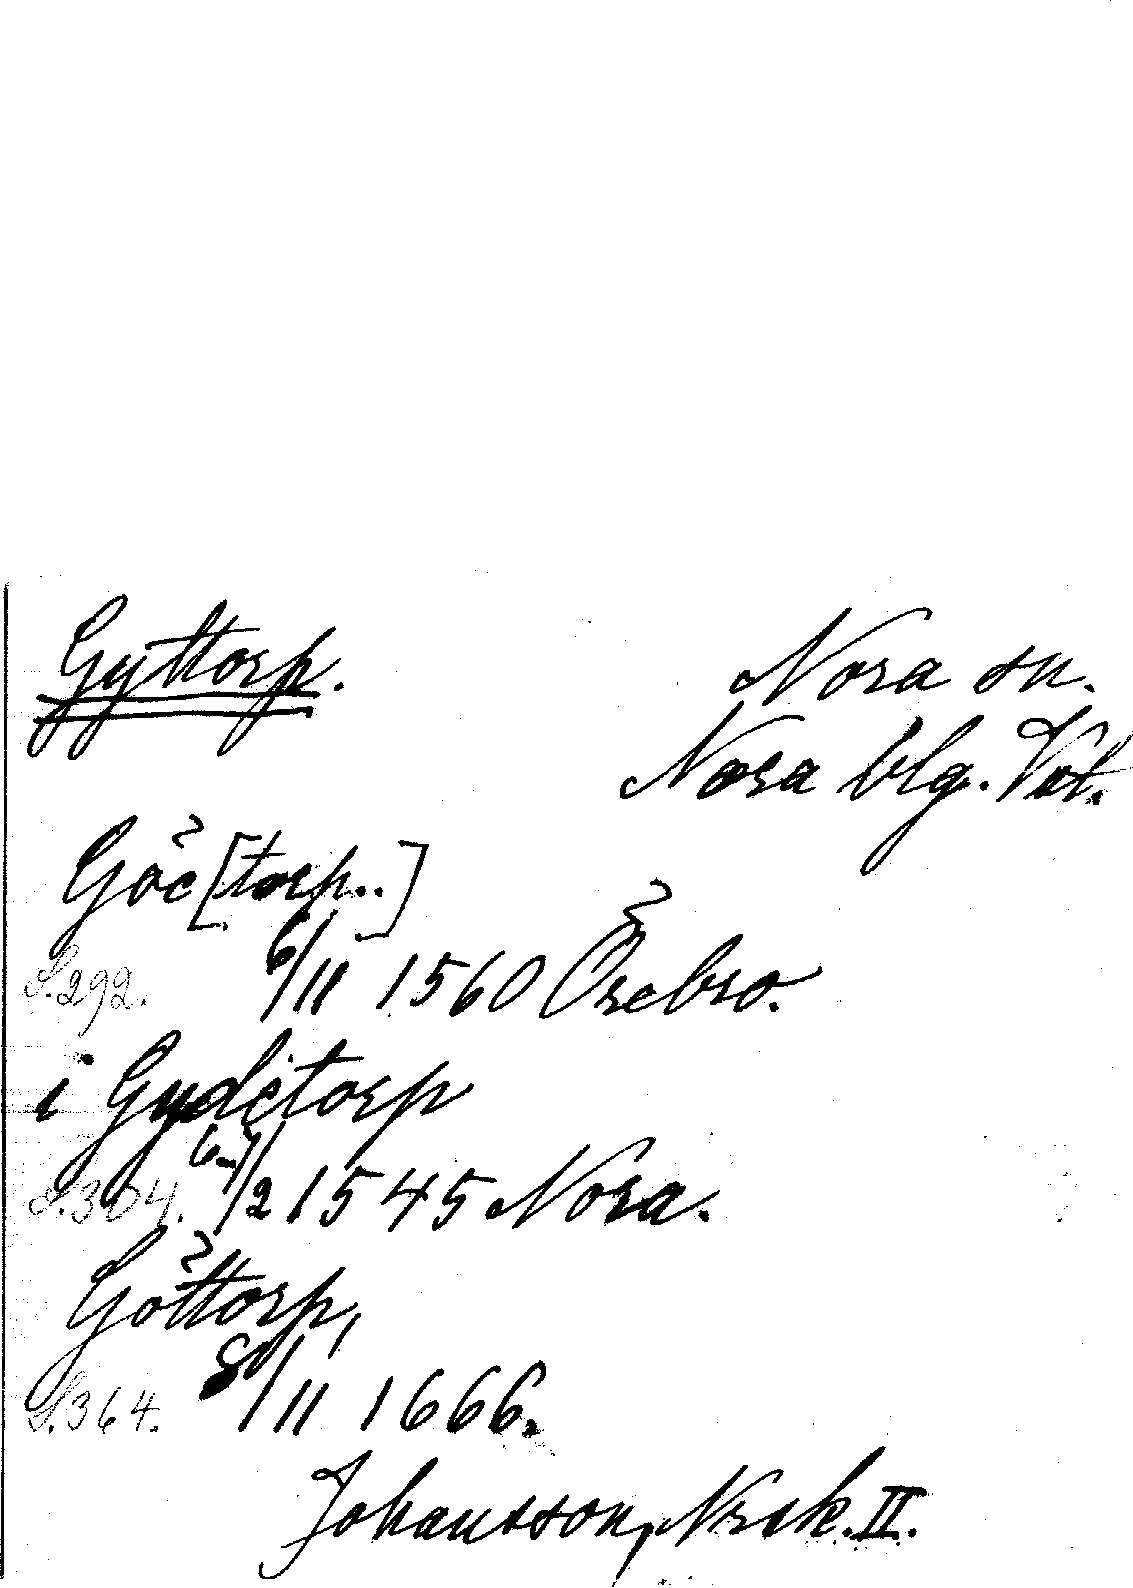 Gyttorp.
Nora sn.
Nora blg. Vstl.
Göc[torp..]
S.292. 6/11 1560 Örebro.
i Gydetorp
S.304. /2 1545 Nora.
Göttorp,
S.364. 8/11 1666.
Johansson, Nrsk. II.